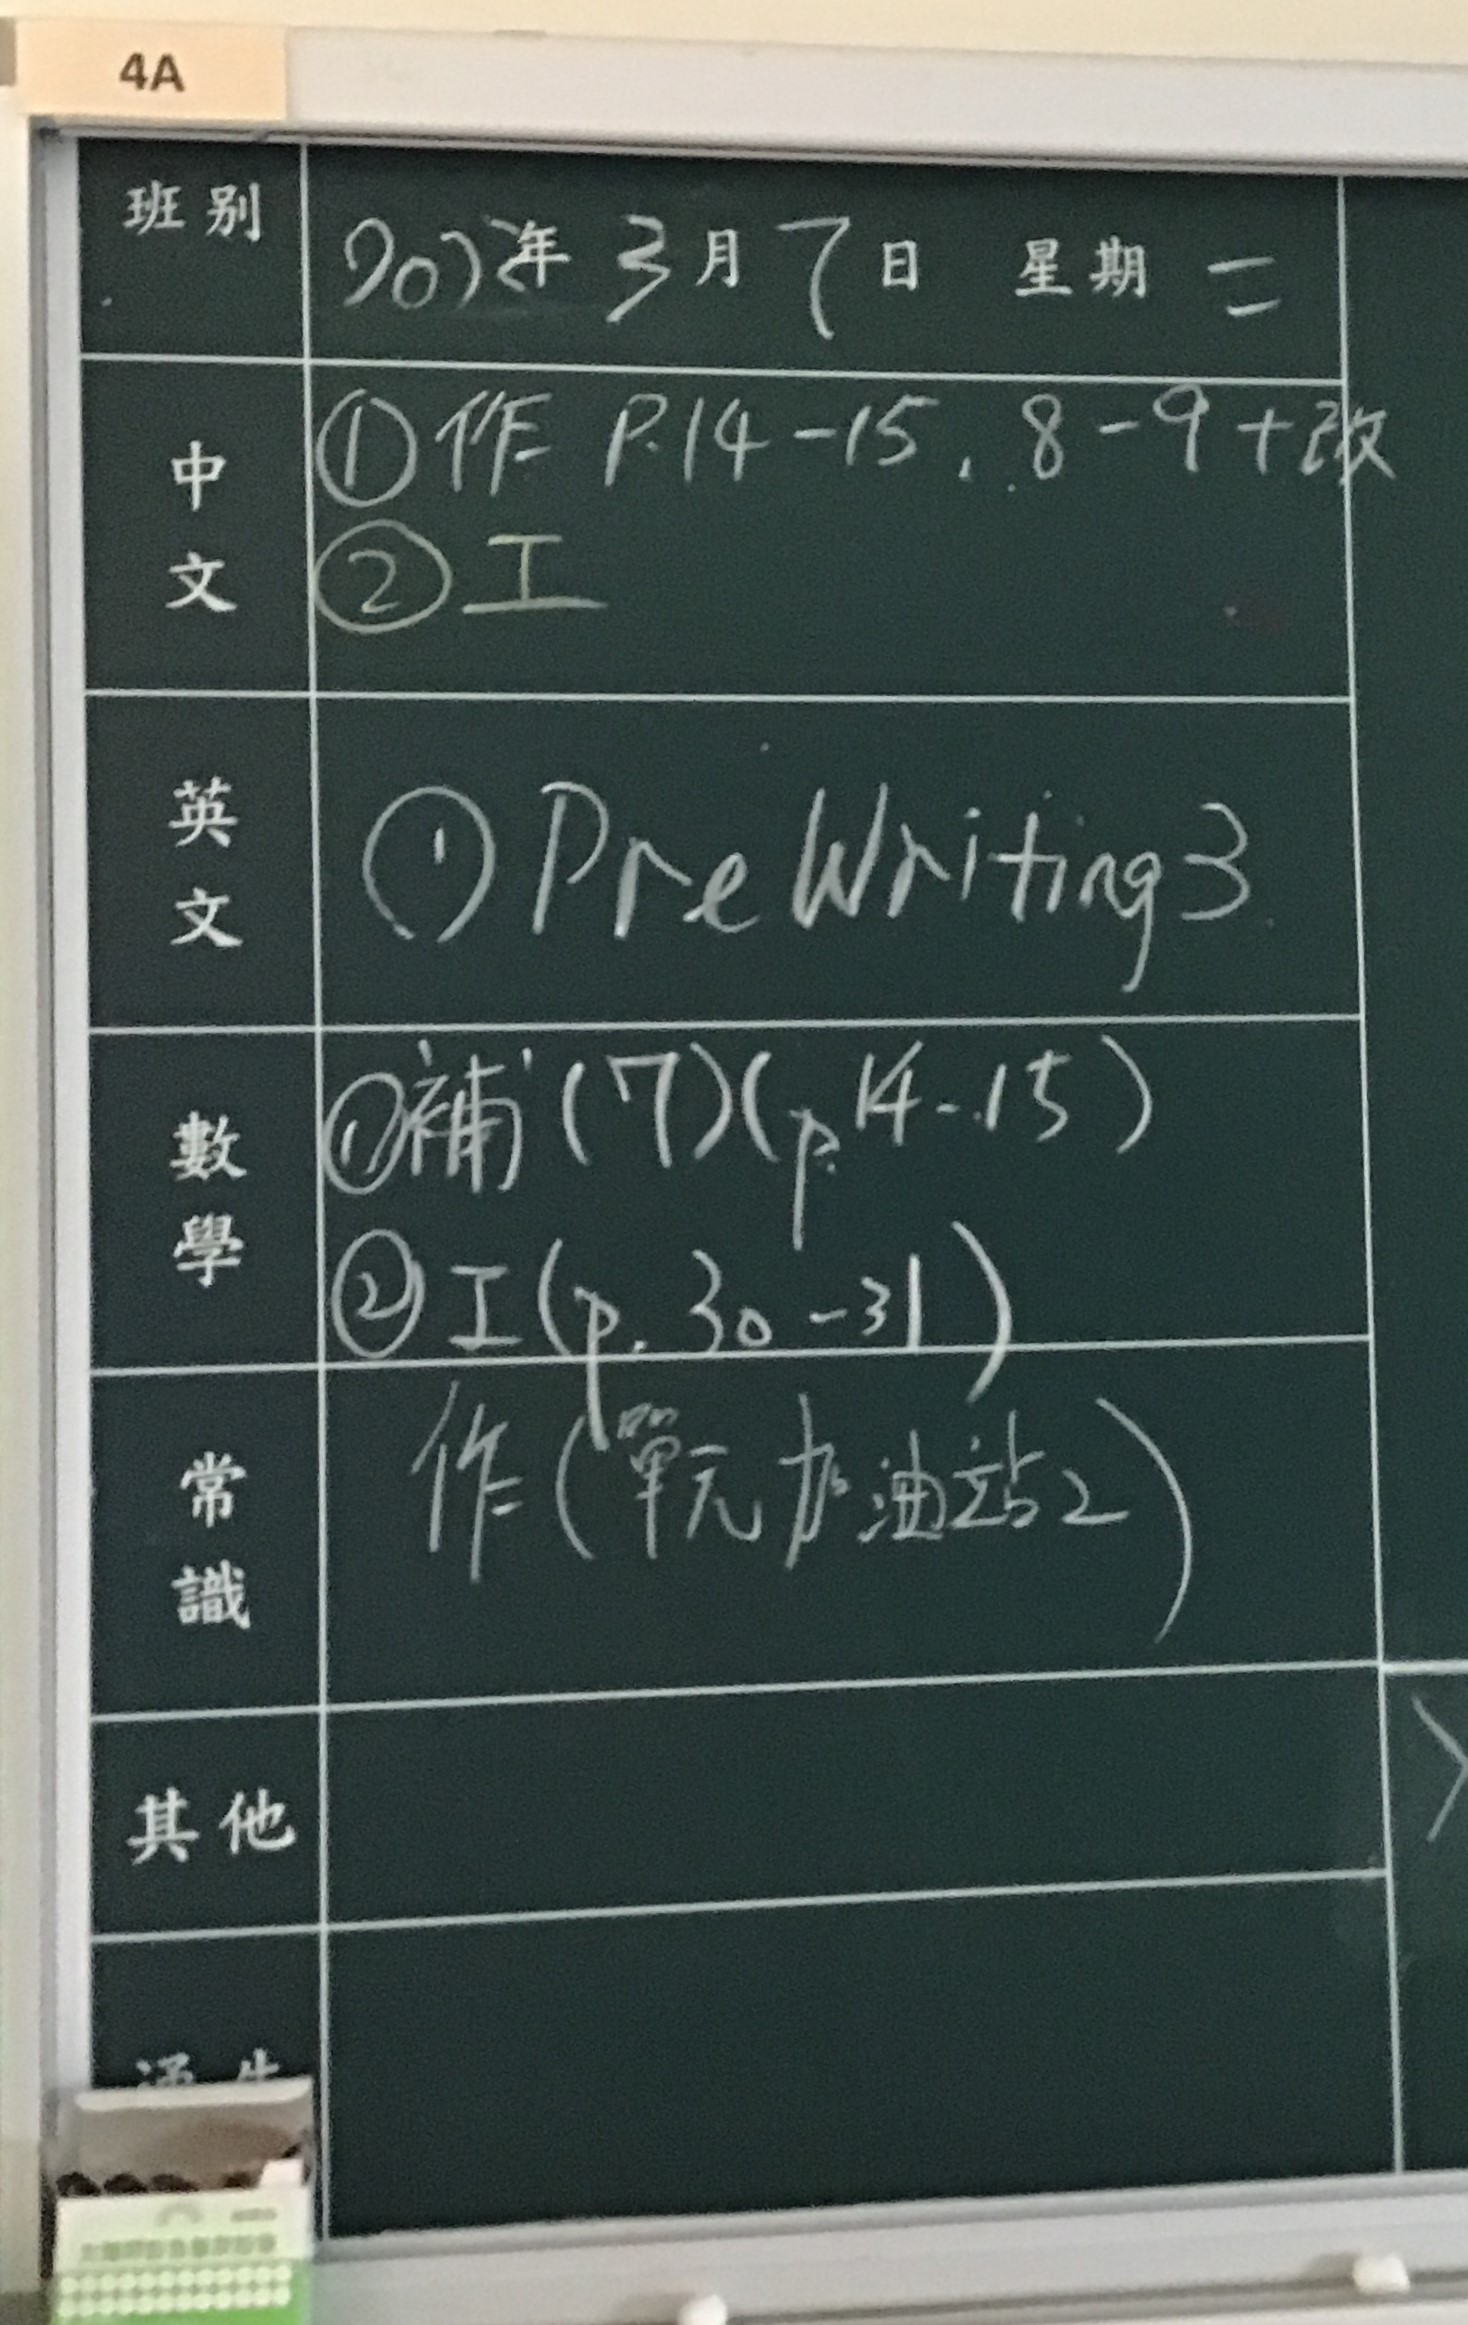 4A
班別
2023年3月7日 星期二
中文
①作 P.14-15、8-9+改
②工
英文
①Pre Writing 3
數學
①補(7)(p.14-15)
②工(p.30-31)
常識
作(單元加油站2)
其他